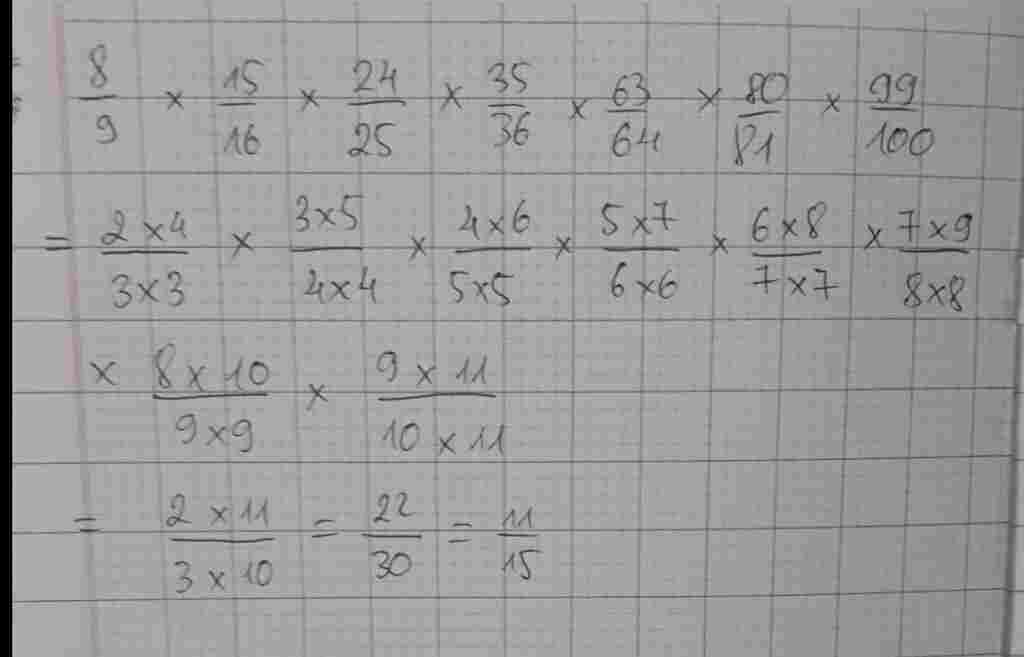 8/9 × 15/16 × 24/25 × 35/36 × 63/64 × 80/81 × 99/100
= 2×4/3×3 × 3×5/4×4 × 4×6/5×5 × 5×7/6×6 × 6×8/7×7 × 7×9/8×8
× 8×10/9×9 × 9×11/10×11
= 2×11/3×10 = 22/30 = 11/15